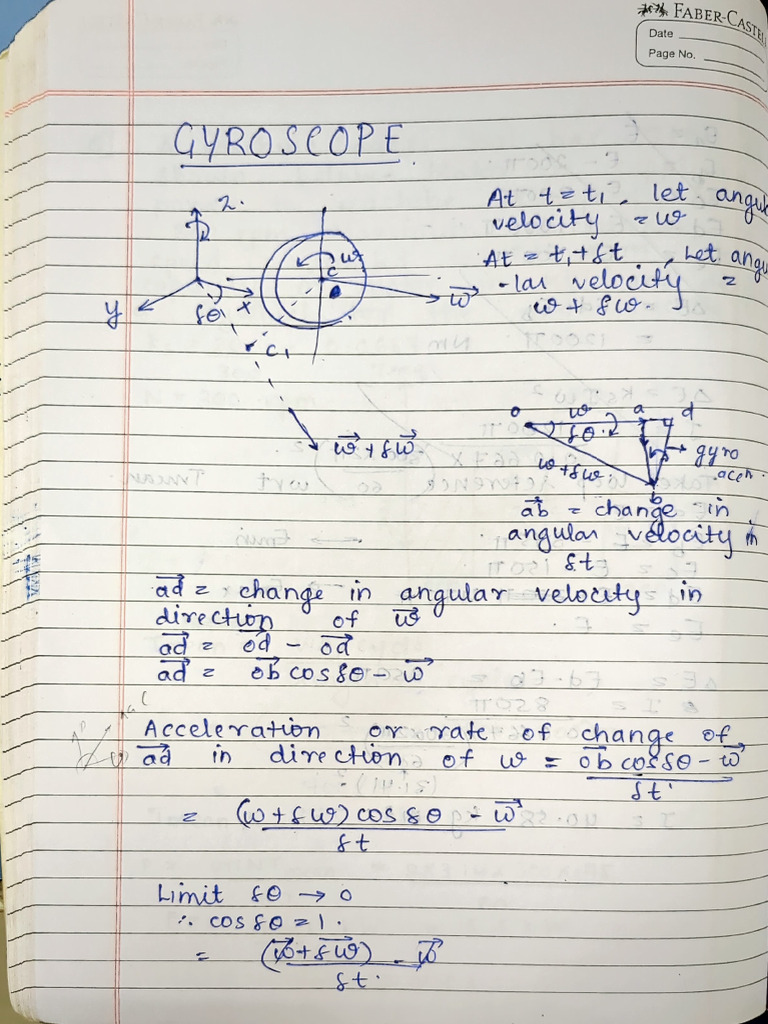 FABER-CASTELL
Date
Page No.
GYROSCOPE
At t = t₁, let angul
velocity = ω
At = t₁ + δt, Let angu
-lar velocity =
ω + δω
z.
ω
c
x
y
δθ
c₁
ω⃗
ω⃗ + δω⃗
o ω a d
δθ
ω + δω
gyro
accn.
b
ab⃗ = change in
angular velocity in
δt
ad⃗ = change in angular velocity in
direction of ω⃗
ad⃗ = od⃗ - od⃗
ad⃗ = ob⃗ cos δθ - ω⃗
Acceleration or rate of change of
ad⃗ in direction of ω = (ob⃗ cos δθ - ω⃗) / δt.
= ((ω + δω) cos δθ - ω⃗) / δt
Limit δθ → 0
∴ cos δθ = 1.
= ((ω⃗ + δω⃗) - ω⃗) / δt.